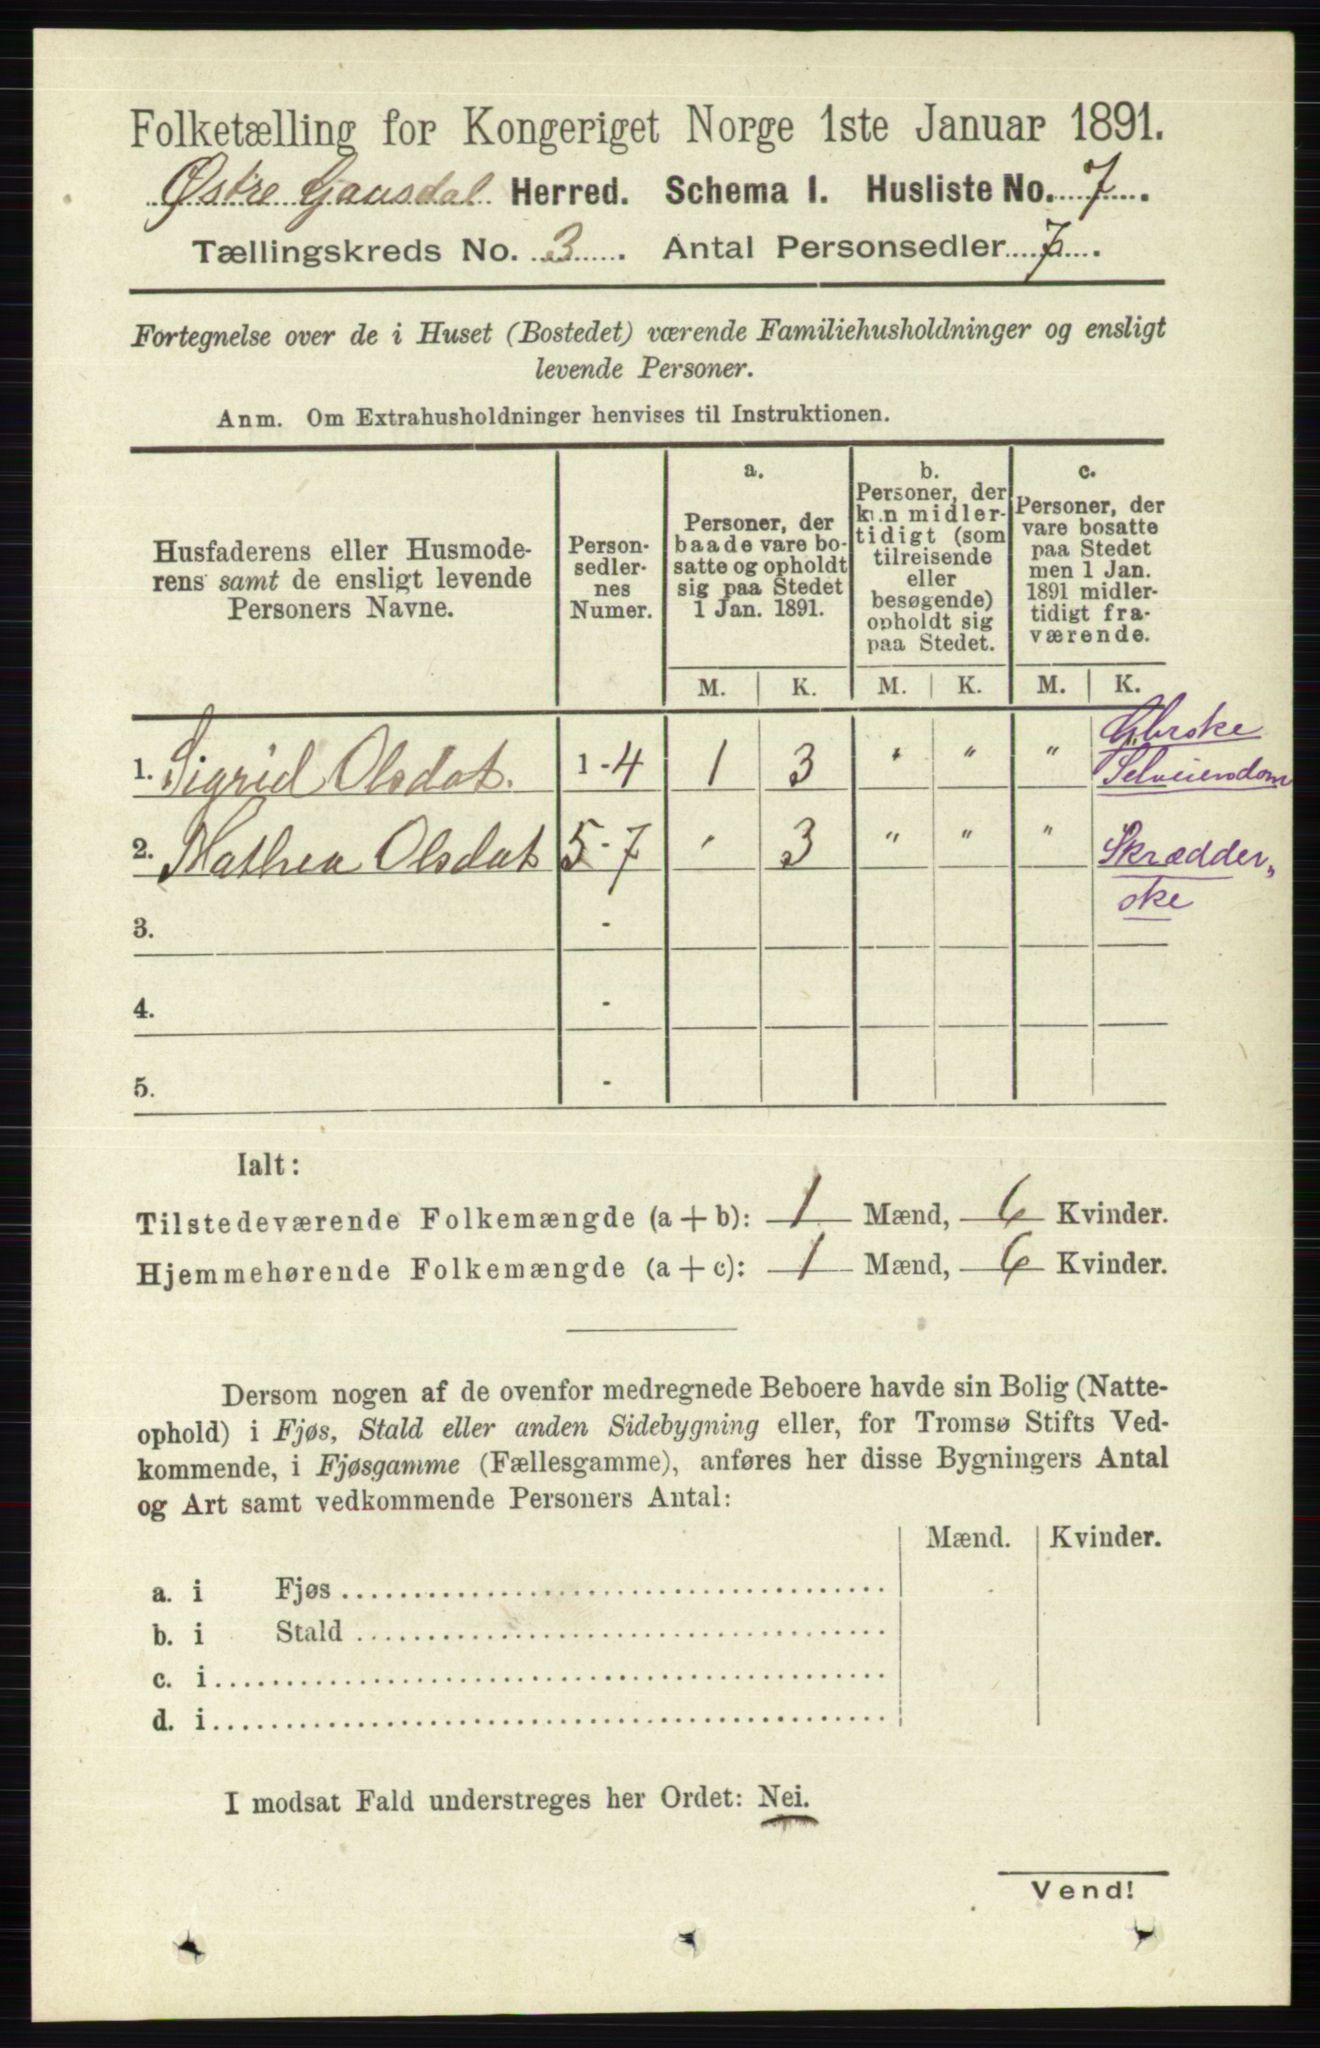 Folketælling for Kongeriget Norge 1ste Januar 1891.
Østre Gausdal Herred. Schema I. Husliste No. 7.
Tællingskreds No. 3. Antal Personsedler 7.
Fortegnelse over de i Huset (Bostedet) værende Familiehusholdninger og ensligt
levende Personer.
Anm. Om Extrahusholdninger henvises til Instruktionen.
Husfaderens eller Husmode-
rens samt de ensligt levende
Personers Navne.
Person-
sedler-
nes
Numer.
a.
Personer, der
baade vare bo-
satte og opholdt
sig paa Stedet
1 Jan. 1891.
b.
Personer, der
kun midler-
tidigt (som
tilreisende
eller
besøgende)
opholdt sig
paa Stedet.
c.
Personer, der
vare bosatte
paa Stedet
men 1 Jan.
1891 midler-
tidigt fra-
værende.
M. K. M. K. M. K.
1. Sigrid Olsdat. 1-4 1 3 " " "
Selveiendom
2. Mathea Olsdat 5-7 " 3 " " " Skrædder„
ske
3. -
4. -
5. -
Ialt:
Tilstedeværende Folkemængde (a + b): 1 Mænd, 6 Kvinder.
Hjemmehørende Folkemængde (a + c): 1 Mænd, 6 Kvinder.
Dersom nogen af de ovenfor medregnede Beboere havde sin Bolig (Natte-
ophold) i Fjøs, Stald eller anden Sidebygning eller, for Tromsø Stifts Ved-
kommende, i Fjøsgamme (Fællesgamme), anføres her disse Bygningers Antal
og Art samt vedkommende Personers Antal:
Mænd. Kvinder.
a. i Fjøs
b. i Stald
c. i
d. i
I modsat Fald understreges her Ordet: Nei.
Vend!